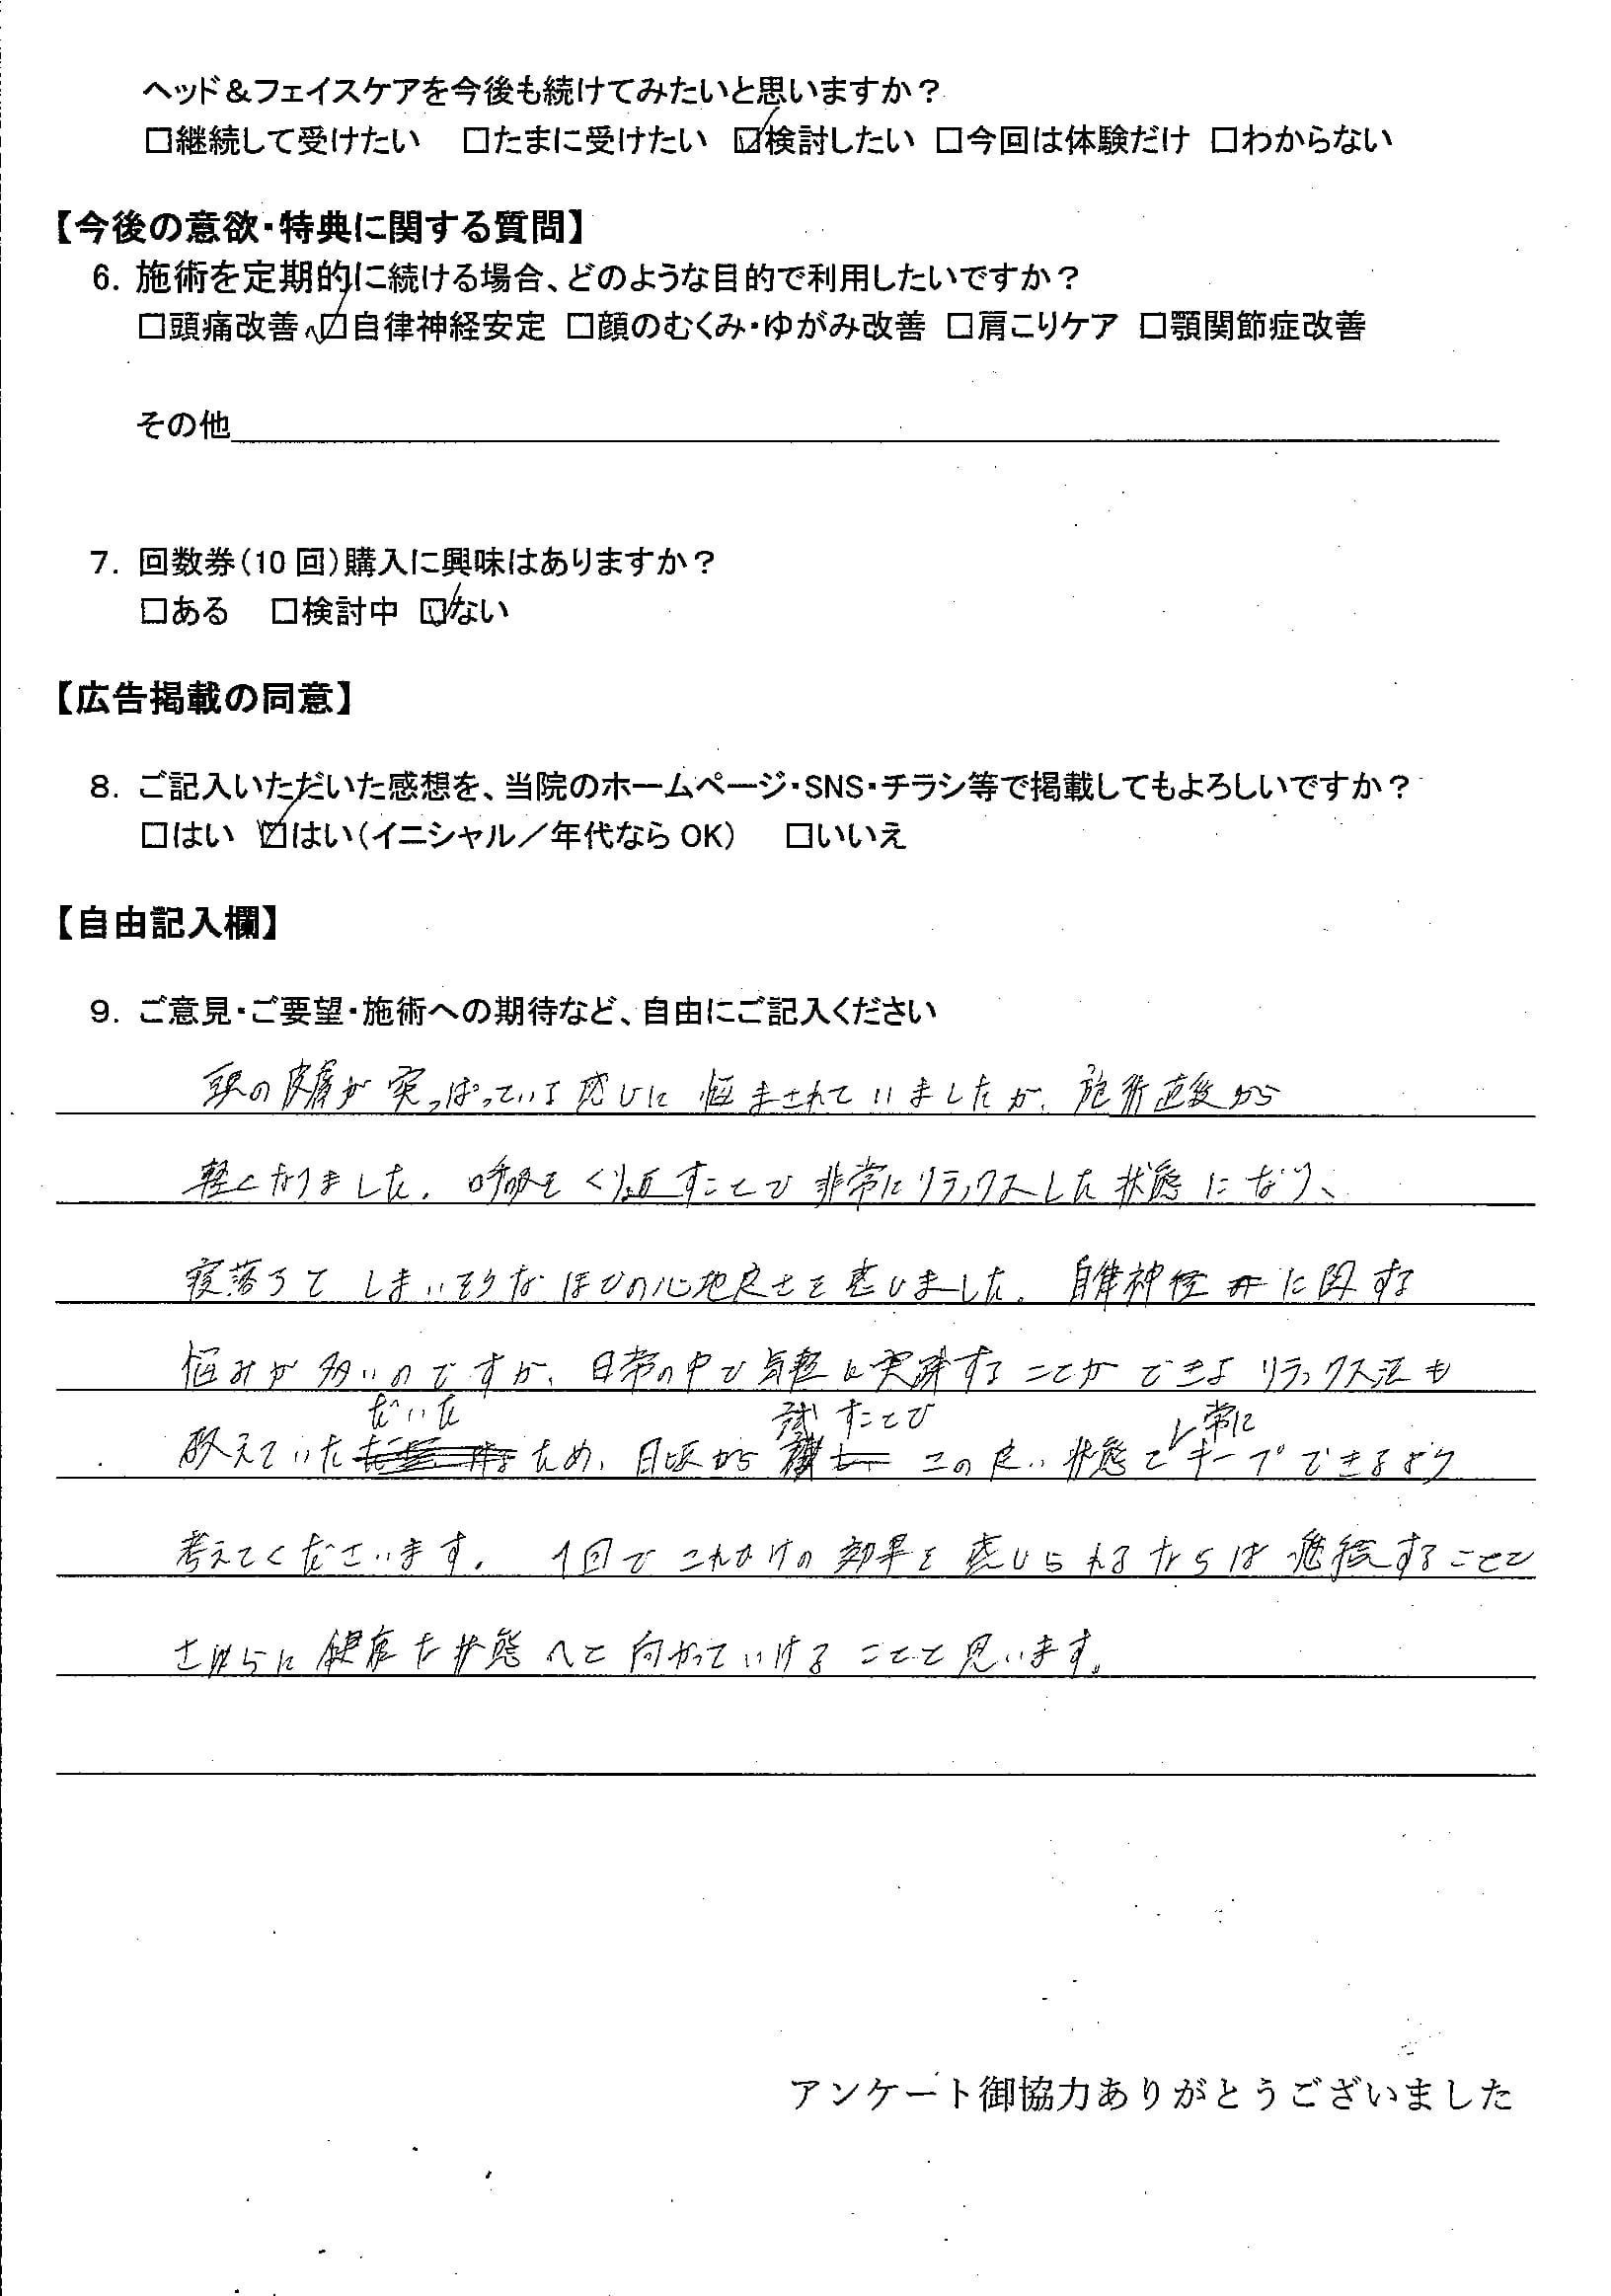 ヘッド＆フェイスケアを今後も続けてみたいと思いますか？
□継続して受けたい □たまに受けたい ☑検討したい □今回は体験だけ □わからない
【今後の意欲・特典に関する質問】
6. 施術を定期的に続ける場合、どのような目的で利用したいですか？
□頭痛改善 ☑自律神経安定 □顔のむくみ・ゆがみ改善 □肩こりケア □顎関節症改善
その他
7. 回数券（10回）購入に興味はありますか？
□ある □検討中 ☑ない
【広告掲載の同意】
8. ご記入いただいた感想を、当院のホームページ・SNS・チラシ等で掲載してもよろしいですか？
□はい ☑はい（イニシャル／年代ならOK） □いいえ
【自由記入欄】
9. ご意見・ご要望・施術への期待など、自由にご記入ください
頭の皮膚が突っぱっている感じに悩まされていましたが、施術直後から
軽くなりました。呼吸をくり返すことで非常にリラックスした状態になり、
寝落ちてしまいそうなほどの心地良さを感じました。自律神経に関する
悩みが多いのですが、日常の中で気軽に実践することができるリラックス法も
教えていただいたため、日頃から試すことでこの良い状態を常にキープできるよう
考えてくださいます。1回でこれだけの効果を感じられるならば継続することで
さらに健康な状態へと向かっていけることと思います。
アンケート御協力ありがとうございました